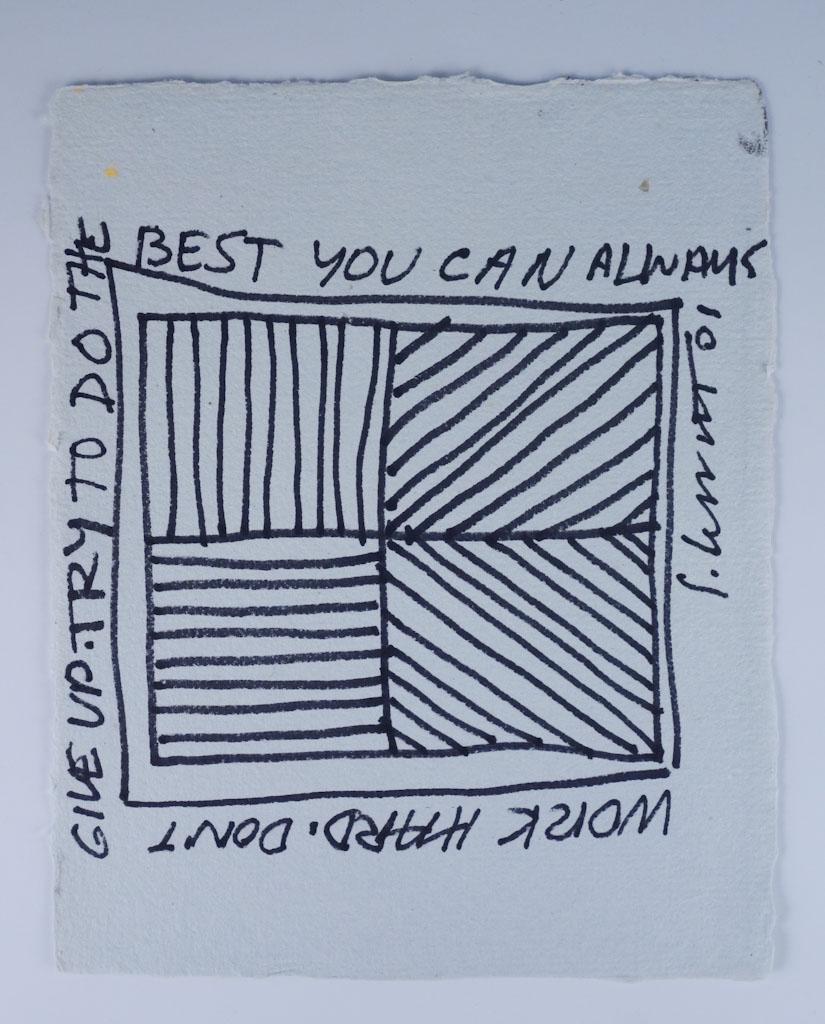 WORK HARD. DON'T
GIVE UP. TRY TO DO THE
BEST YOU CAN ALWAYS
S. LEWITT 01